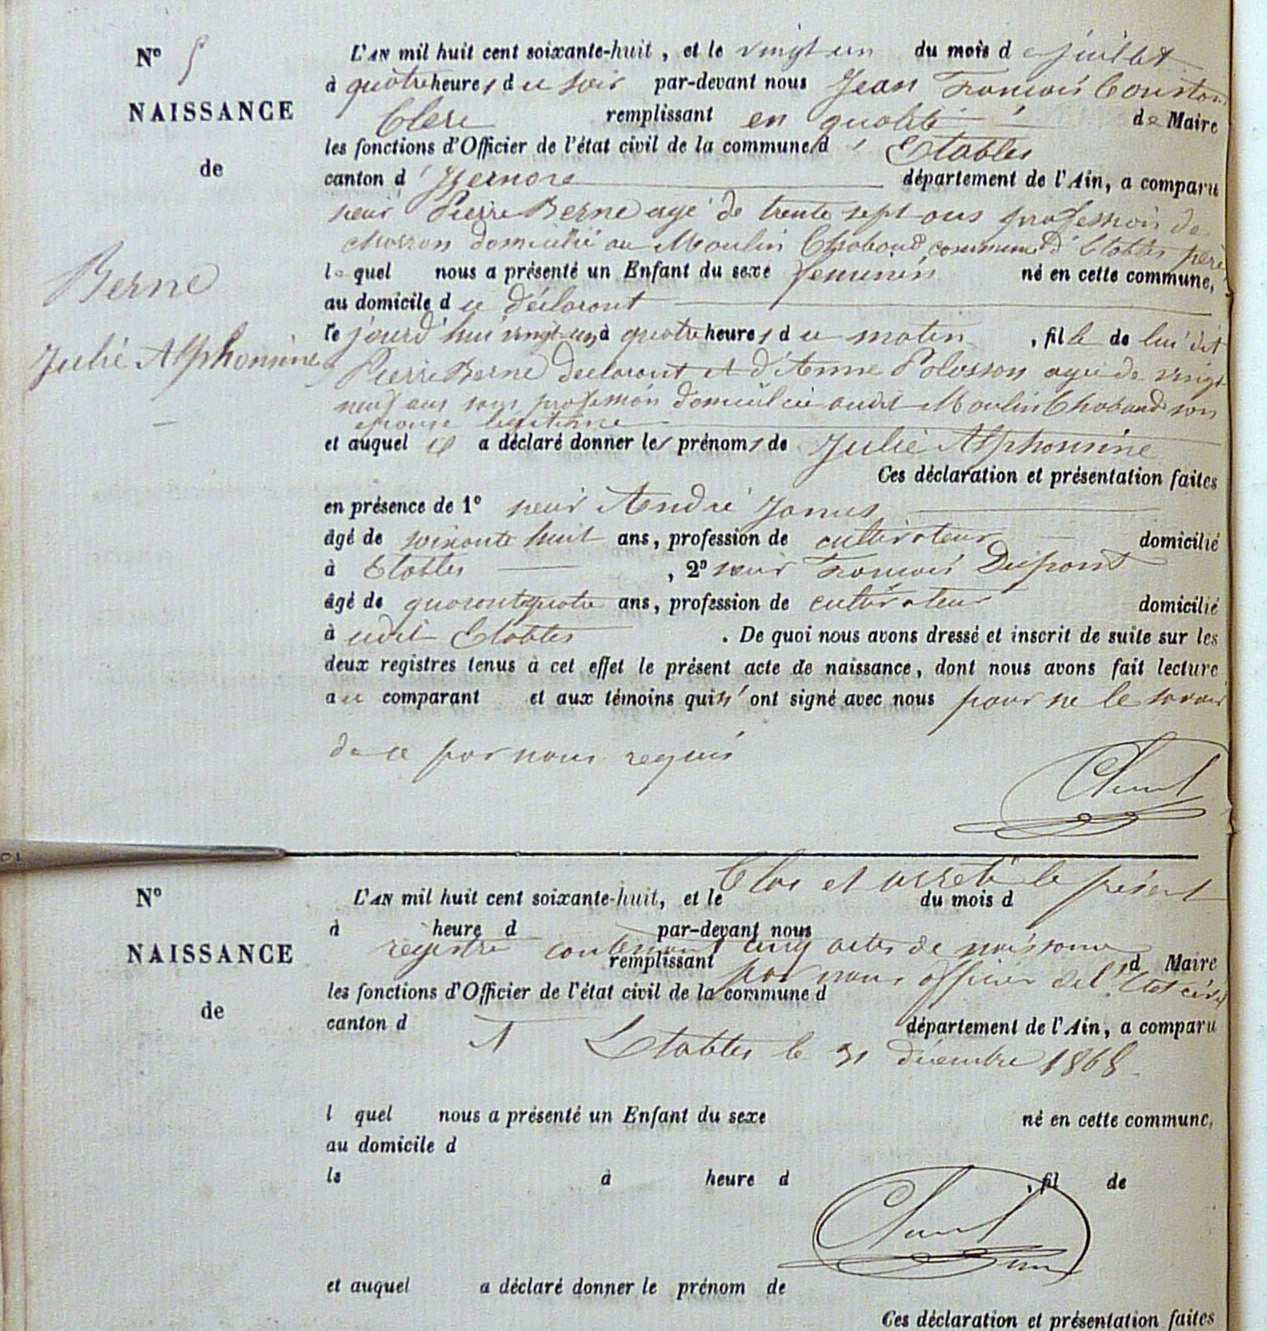 N° 5
NAISSANCE
de
Berne
Julie Alphonsine
L'AN mil huit cent soixante-huit, et le vingt un du mois de juillet
à quatre heures du soir par-devant nous Jean François Constan
Clerc remplissant en qualité de Maire
les fonctions d'Officier de l'état civil de la commune d' Etables
canton d' Izernore département de l'Ain, a comparu
sieur Pierre Berne agé de trente sept ans profession de
domicilié au Moulin Chaboud commune d'Etables père
lequel nous a présenté un Enfant du sexe feminin né en cette commune,
au domicile du déclarant
le jourd'hui vingt un à quatre heures du matin, fille de lui dit
Pierre Berne declarant et d'Anne Polosson agée de vingt
neuf ans sans profession domiciliée audit Moulin Chaboud son
épouse légitime
et auquel il a déclaré donner les prénoms de Julie Alphonsine
Ces déclaration et présentation faites
en présence de 1° sieur André Janus
âgé de soixante huit ans, profession de cultivateur domicilié
à Etables, 2° sieur François Dupont
âgé de quarante quatre ans, profession de cultivateur domicilié
à udit Etables. De quoi nous avons dressé et inscrit de suite sur les
deux registres tenus à cet effet le présent acte de naissance, dont nous avons fait lecture
au comparant et aux témoins qui n'ont signé avec nous pour ne le savoir
de ce par nous requis
N°
NAISSANCE
de
Clos et arrêté le présent
L'AN mil huit cent soixante-huit, et le du mois d
à heure d par-devant nous
registre contenant cinq actes de naissance
remplissant d Maire
par nous officier de l'Etat civil
les fonctions d'Officier de l'état civil de la commune d
canton d département de l'Ain, a comparu
A Etables le 31 décembre 1868
l quel nous a présenté un Enfant du sexe né en cette commune,
au domicile d
le à heure d, fil de
et auquel a déclaré donner le prénom de
Ces déclaration et présentation faites